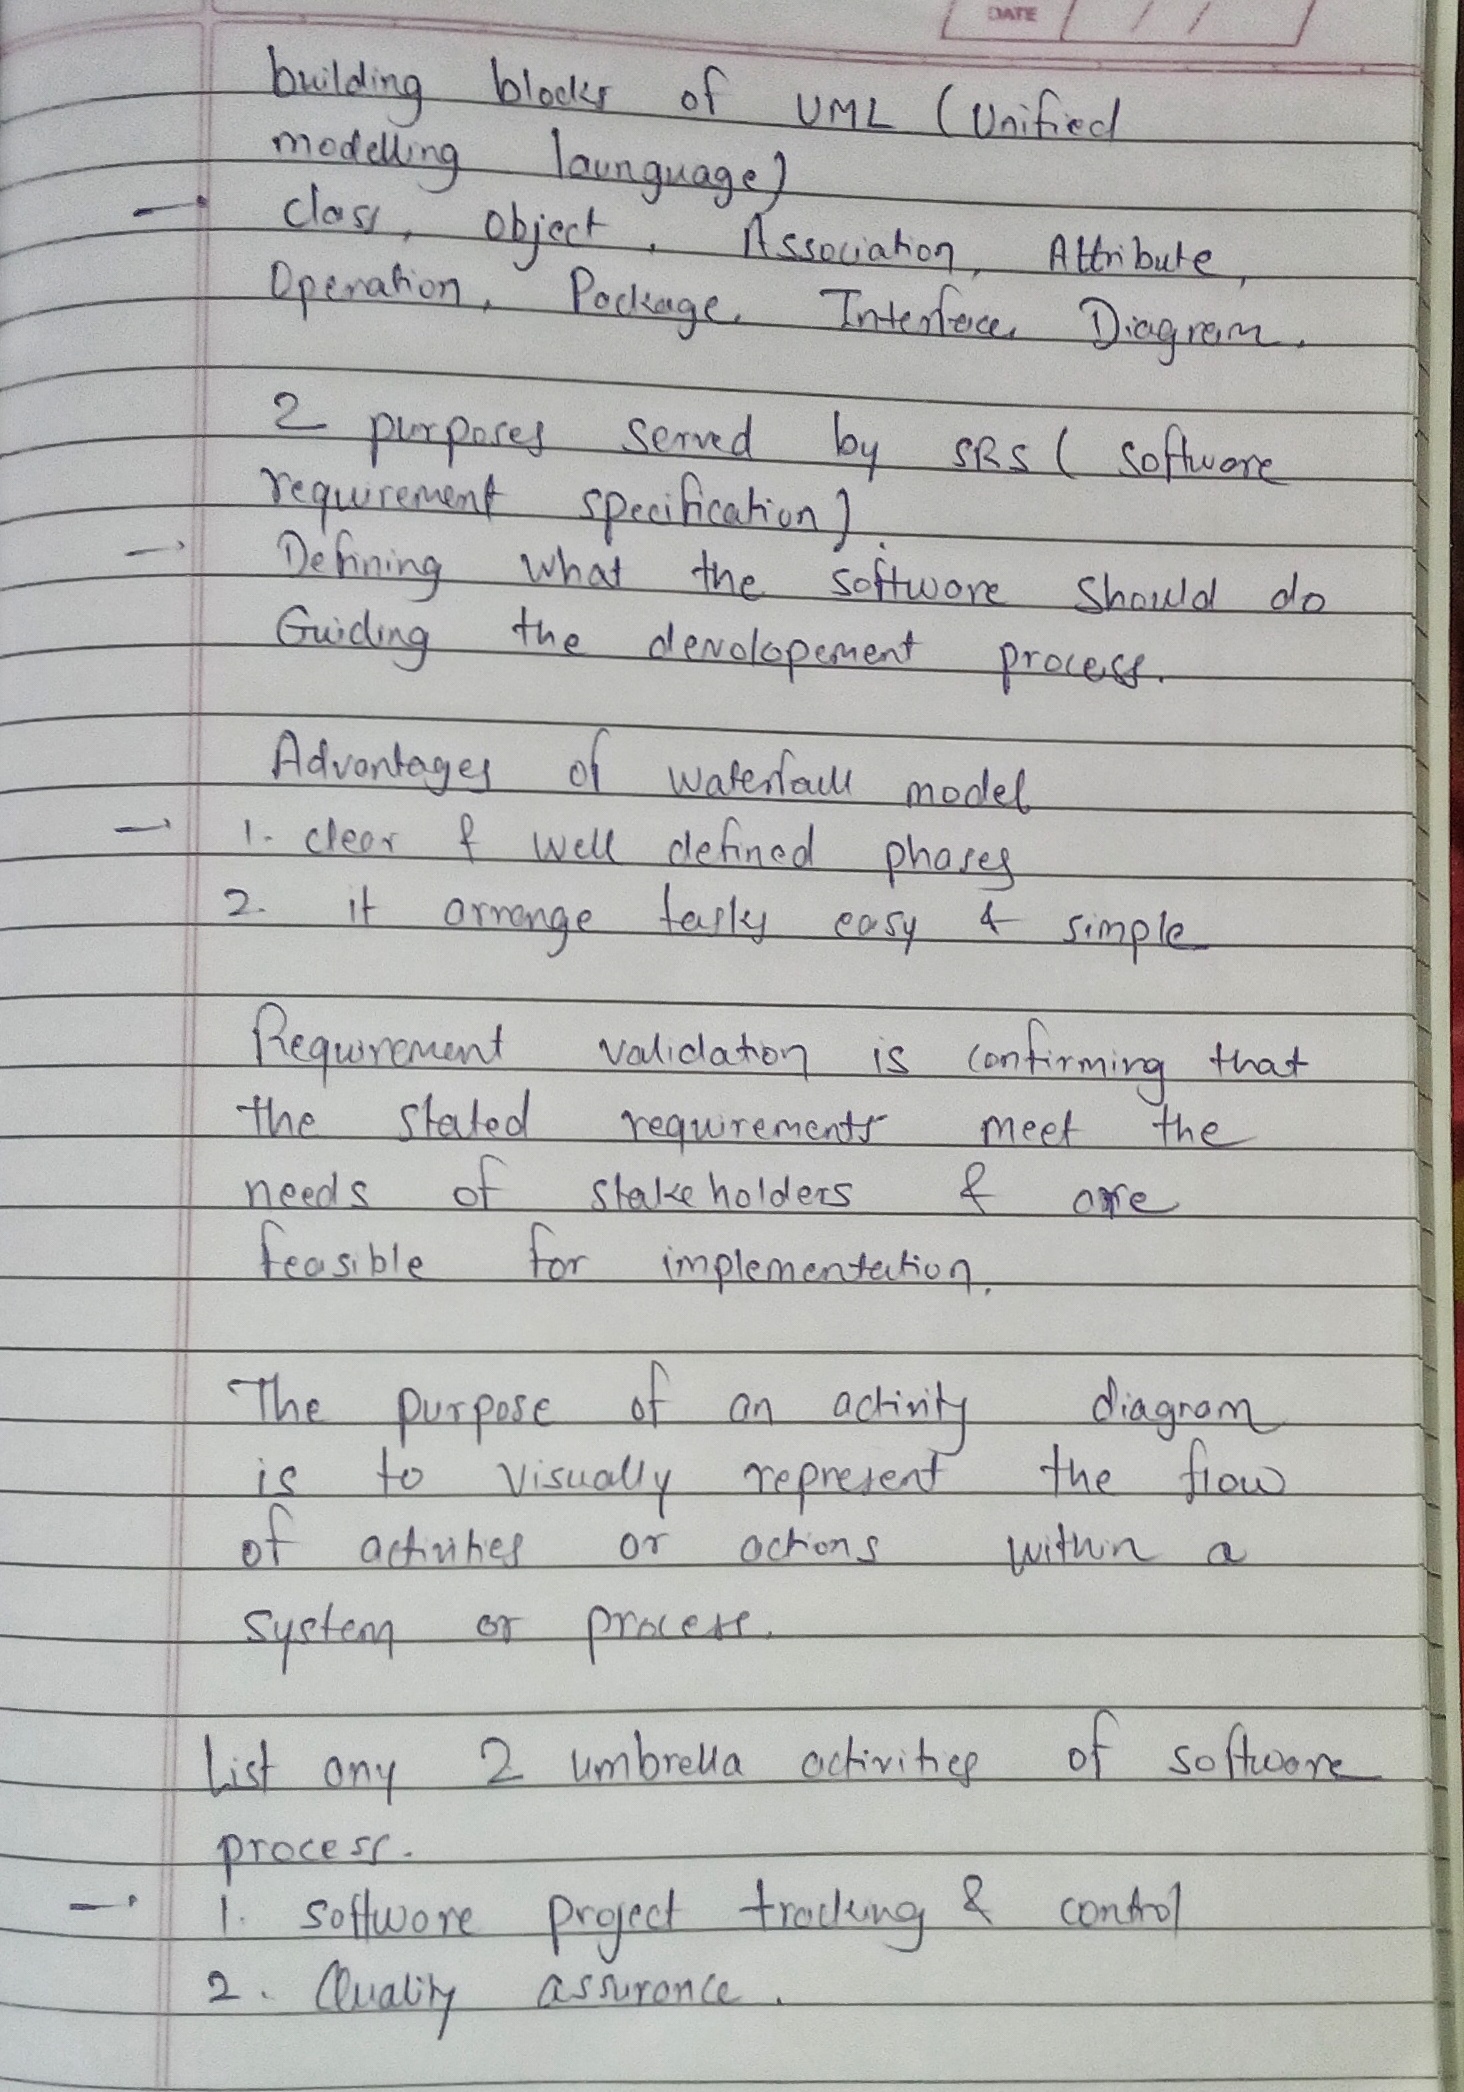 DATE / /
building blocks of UML (Unified
modelling launguage)
→ class, object, Association, Attribute,
Operation, Package, Interface, Diagram.
2 purposes served by SRS ( Software
requirement specification).
→ Defining what the software should do
Guiding the devolopement process.
Advantages of waterfall model
→ 1. clear & well defined phases
2. it arrange tasks easy & simple
Requirement validation is confirming that
the stated requirements meet the
needs of stakeholders & are
feasible for implementation.
The purpose of an activity diagram
is to visually represent the flow
of activities or actions within a
system or process.
List any 2 umbrella activities of software
process.
→ 1. software project tracking & control
2. Quality assurance.